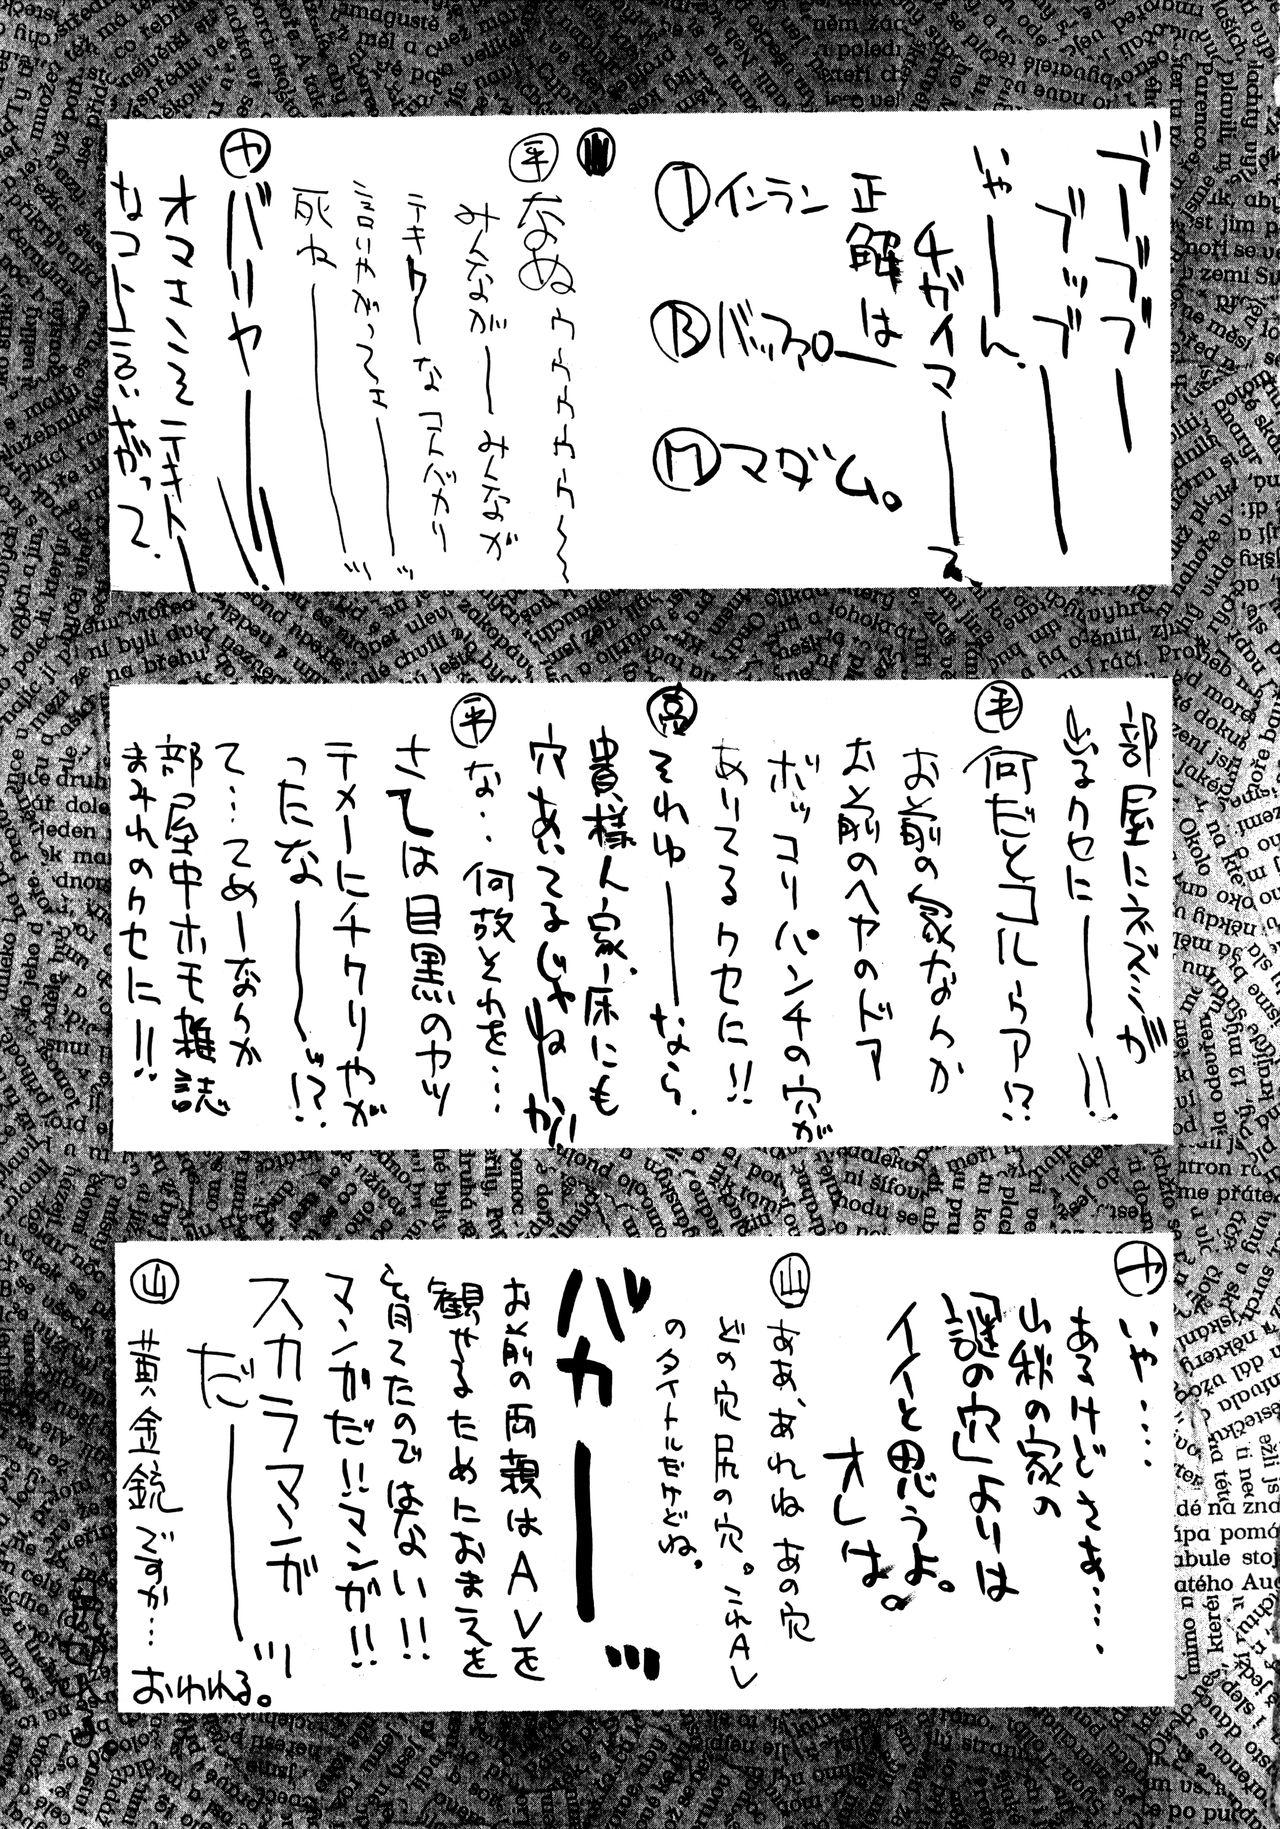 ブーブブーー
ブッブーー
いやーーん。
チガイマーーース
正解は
Ⓘインラン
Ⓑバッファロー
Ⓜマダム。
㊉なぬゥゥゥゥゥゥ〜〜
みんながーーみんなが
テキトーなコトバカリ
言いやがってェーーッ
死ねーーーッ
ヤ バリヤーーー!!
オマエこそテキトー
なコト言いやがって。
部屋にネズミが
出るクセにーーー!!
平 何だとコルらァ!?
お前の家なんか
お前のヘヤのドア
ボッコリパンチの穴が
ありてるクセに!!
亮 それゆーーなら、
貴様ん家、床にも
穴あいてるじゃねーか!!
平 な…何故それを…
さては目黒のヤツ
テメーにチクリやが
ったなーーー!?
て…てめーなんか
部屋中ホモ雑誌
まみれのクセに!!
ヤ いや……
あるけどさぁ……
山秋の家の
「謎の穴」よりは
イイと思うよ。
オレは。
山 ああ、あれね あの穴
どの穴 尻の穴。これAV
のタイトルだけどね。
バカーーーッ
お前の両親はAVを
観せるためにおまえを
育てたのではない!!
マンガだ!!マンガ!!
スカラマンガ
だーーーッ
山 黄金銃ですか…
おわれる。